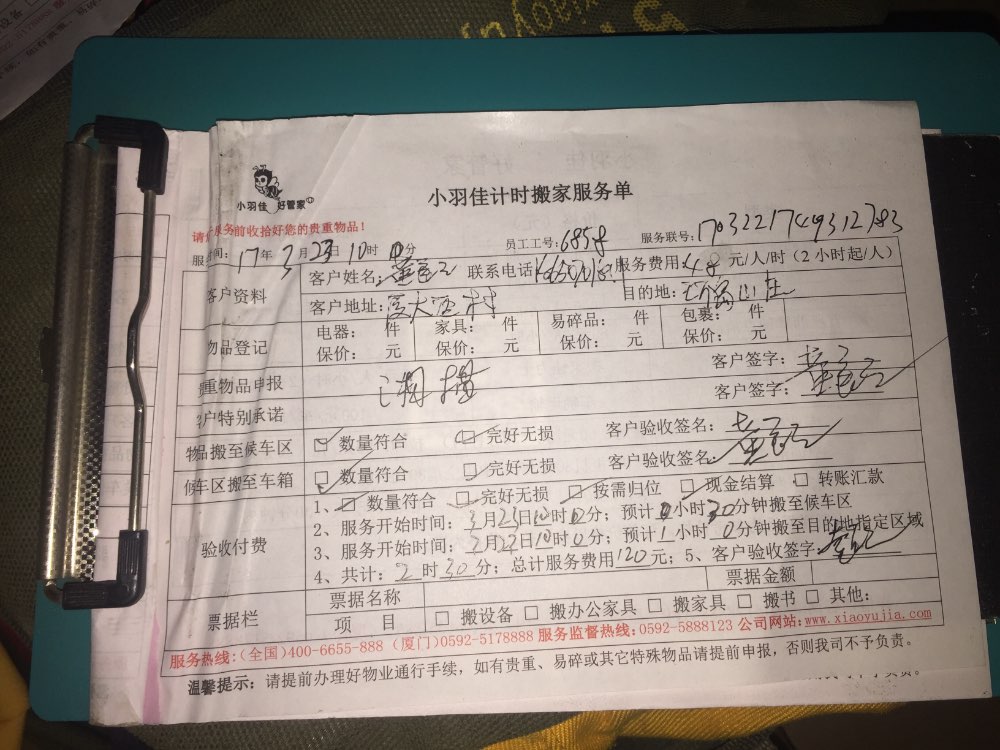 小羽佳 好管家
小羽佳计时搬家服务单
服务前收拾好您的贵重物品!
时间: 17年 3月 23日 10时 分 员工工号: 6858 服务联号: 1703221749312783
客户资料 客户姓名: 联系电话 服务费用: 48 元/人/时 (2 小时起/人)
客户地址: 厦大西村 目的地: 山庄
物品登记 电器: 件 家具: 件 易碎品: 件 包裹: 件
保价: 元 保价: 元 保价: 元 保价: 元
重物品申报 客户签字:
户特别承诺 客户签字:
物品搬至候车区 数量符合 完好无损 客户验收签名:
候车区搬至车箱 数量符合 完好无损 客户验收签名:
验收付费 1、 数量符合 完好无损 按需归位 现金结算 转账汇款
2、服务开始时间: 3月23日10时10分; 预计 0小时30分钟搬至候车区
3、服务开始时间: 月 日10时0分; 预计1小时 0分钟搬至目的地指定区域
4、共计: 2 时 30 分; 总计服务费用120元; 5、客户验收签字:
票据栏 票据名称 票据金额
项 目 搬设备 搬办公家具 搬家具 搬书 其他:
服务热线:(全国)400-6655-888 (厦门)0592-5178888 服务监督热线: 0592-5888123 公司网站: www.xiaoyujia.com
温馨提示: 请提前办理好物业通行手续, 如有贵重、易碎或其它特殊物品请提前申报, 否则我司不予负责。